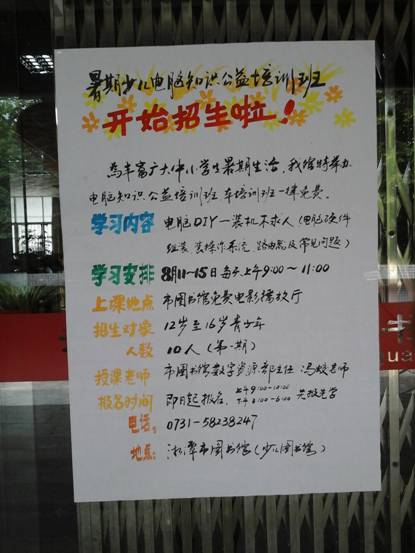 暑期少儿电脑知识公益培训班
开始招生啦！
为丰富广大中小学生暑期生活，我馆特举办
电脑知识公益培训班 本培训班一律免费。
学习内容 电脑DIY—装机不求人（电脑硬件
组装 安装操作系统 路由器及常见问题）
学习安排 8月11~15日每天上午9:00~11:00
上课地点 市图书馆免费电影播放厅
招生对象 12岁至16岁青少年
人数 10人（第一期）
授课老师 市图书馆数字资源部主任 冯 老师
报名时间 即日起报名，上午9:00-12:00
下午 :00-6:00 先报先学
电话: 0731-58238247
地点: 湘潭市图书馆（少儿图书馆）
书
hua